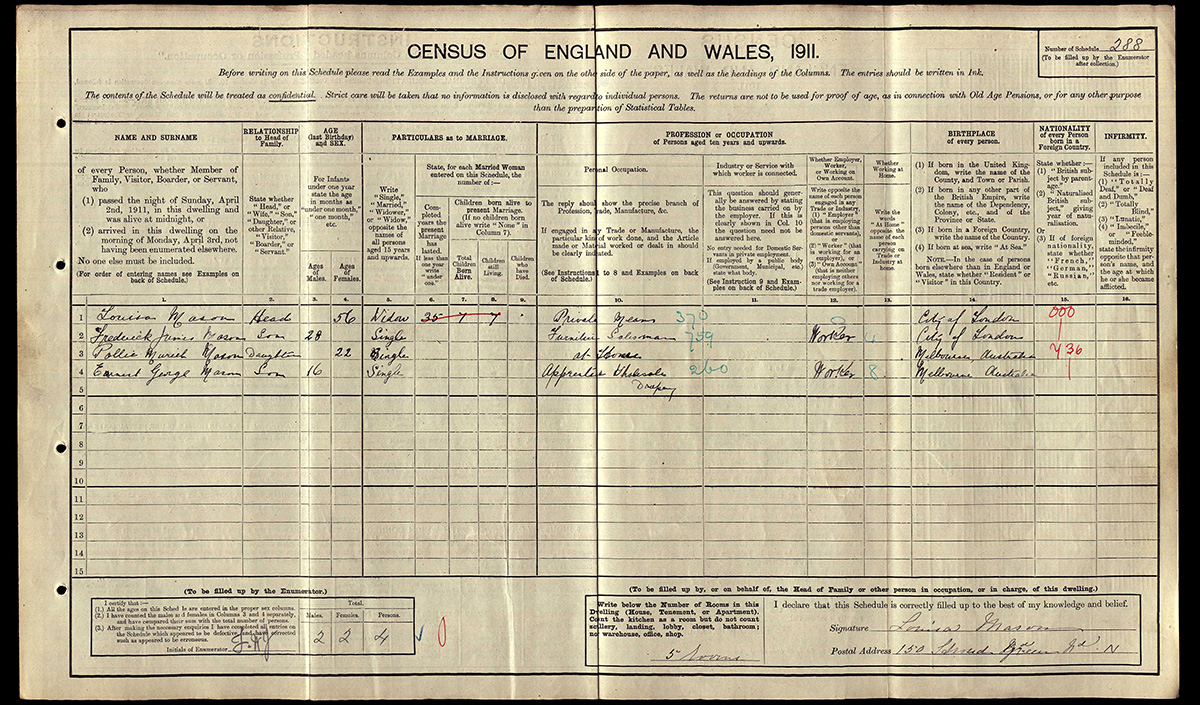 CENSUS OF ENGLAND AND WALES, 1911.
Number of Schedule 288
(To be filled up by the Enumerator
after collection.)
Before writing on this Schedule please read the Examples and the Instructions given on the other side of the paper, as well as the headings of the Columns. The entries should be written in Ink.
The contents of the Schedule will be treated as confidential. Strict care will be taken that no information is disclosed with regard to individual persons. The returns are not to be used for proof of age, as in connection with Old Age Pensions, or for any other purpose
than the preparation of Statistical Tables.
NAME AND SURNAME
of every Person, whether Member of
Family, Visitor, Boarder, or Servant,
who
(1) passed the night of Sunday, April
2nd, 1911, in this dwelling and
was alive at midnight, or
(2) arrived in this dwelling on the
morning of Monday, April 3rd, not
having been enumerated elsewhere.
No one else must be included.
(For order of entering names see Examples on
back of Schedule.)
RELATIONSHIP
to Head of
Family.
State whether
"Head," or
"Wife," "Son,"
"Daughter," or
other Relative,
"Visitor,"
"Boarder," or
"Servant."
AGE
(last Birthday)
and SEX.
For Infants
under one year
state the age
in months as
"under one month,"
"one month,"
etc.
Ages
of
Males.
Ages
of
Females.
PARTICULARS as to MARRIAGE.
Write
"Single,"
"Married,"
"Widower,"
or "Widow,"
opposite the
names of
all persons
aged 15 years
and upwards.
State, for each Married Woman
entered on this Schedule, the
number of:—
Completed
years the
present
Marriage
has
lasted.
If less than
one year
write
"under
one."
Children born alive to
present Marriage.
(If no children born
alive write "None" in
Column 7).
Total
Children
Born
Alive.
Children
still
Living.
Children
who
have
Died.
PROFESSION or OCCUPATION
of Persons aged ten years and upwards.
Personal Occupation.
The reply should show the precise branch of
Profession, Trade, Manufacture, &c.
If engaged in any Trade or Manufacture, the
particular kind of work done, and the Article
made or Material worked or dealt in should
be clearly indicated.
(See Instructions 1 to 8 and Examples on back
of Schedule.)
Industry or Service with
which worker is connected.
This question should generally
be answered by stating
the business carried on by
the employer. If this is
clearly shown in Col. 10
the question need not be
answered here.
No entry needed for Domestic Servants
in private employment.
If employed by a public body
(Government, Municipal, etc.)
state what body.
(See Instruction 9 and Examples
on back of Schedule.)
Whether Employer,
Worker,
or Working on
Own Account.
Write opposite the
name of each person
engaged in any
Trade or Industry,
(1) "Employer"
(that is employing
persons other than
domestic servants),
or
(2) "Worker" (that
is working for an
employer), or
(3) "Own Account"
(that is neither
employing others
nor working for a
trade employer).
Whether
Working at
Home.
Write the
words
"At Home"
opposite the
name of each
person
carrying on
Trade or
Industry at
home.
BIRTHPLACE
of every person.
(1) If born in the United Kingdom,
write the name of the
County, and Town or Parish.
(2) If born in any other part of
the British Empire, write
the name of the Dependency,
Colony, etc., and of the
Province or State.
(3) If born in a Foreign Country,
write the name of the Country.
(4) If born at sea, write "At Sea."
NOTE.—In the case of persons
born elsewhere than in England or
Wales, state whether "Resident" or
"Visitor" in this Country.
NATIONALITY
of every Person
born in a
Foreign Country.
State whether:—
(1) "British subject
by parentage."
(2) "Naturalised
British subject,"
giving
year of naturalisation.
Or
(3) If of foreign
nationality,
state whether
"French,"
"German,"
"Russian,"
etc.
INFIRMITY.
If any person
included in this
Schedule is:—
(1) "Totally
Deaf," or "Deaf
and Dumb,"
(2) "Totally
Blind,"
(3) "Lunatic,"
(4) "Imbecile,"
or "Feeble-minded,"
state the infirmity
opposite that person's
name, and
the age at which
he or she became
afflicted.
1. 2. 3. 4. 5. 6. 7. 8. 9. 10. 11. 12. 13. 14. 15. 16.
1 Louisa Mason Head 56 Widow 35 7 7 Private Means 370 0 City of London 000
2 Frederick James Mason Son 28 Single Furniture Salesman 759 Worker City of London
3 Pollie Muriel Mason Daughter 22 Single at Home Melbourne, Australia 436
4 Ernest George Mason Son 16 Single Apprentice Wholesale 260 Worker 8 Melbourne Australia
Drapery
5
6
7
8
9
10
11
12
13
14
15
(To be filled up by the Enumerator.)
I certify that:—
(1.) All the ages on this Schedule are entered in the proper sex columns.
(2.) I have counted the males and females in Columns 3 and 4 separately,
and have compared their sum with the total number of persons.
(3.) After making the necessary enquiries I have completed all entries on
the Schedule which appeared to be defective, and have corrected
such as appeared to be erroneous.
Initials of Enumerator
Total.
Males. Females. Persons.
2 2 4
0
(To be filled up by, or on behalf of, the Head of Family or other person in occupation, or in charge, of this dwelling.)
Write below the Number of Rooms in this
Dwelling (House, Tenement, or Apartment).
Count the kitchen as a room but do not count
scullery, landing, lobby, closet, bathroom;
nor warehouse, office, shop.
5 Rooms
I declare that this Schedule is correctly filled up to the best of my knowledge and belief.
Signature Louisa Mason
Postal Address 150 Stroud Green Rd. N